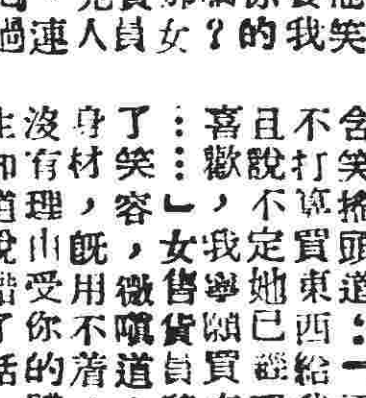 笑
我
的
？
女
員
人
連
過
含笑搖頭道：一
不打算買東西給
且說不定她已經
喜歡，我寧願買
……」女售貨員
了笑容，微嗔道
身材，既用不着
沒有理由受你的
生知道說錯了話